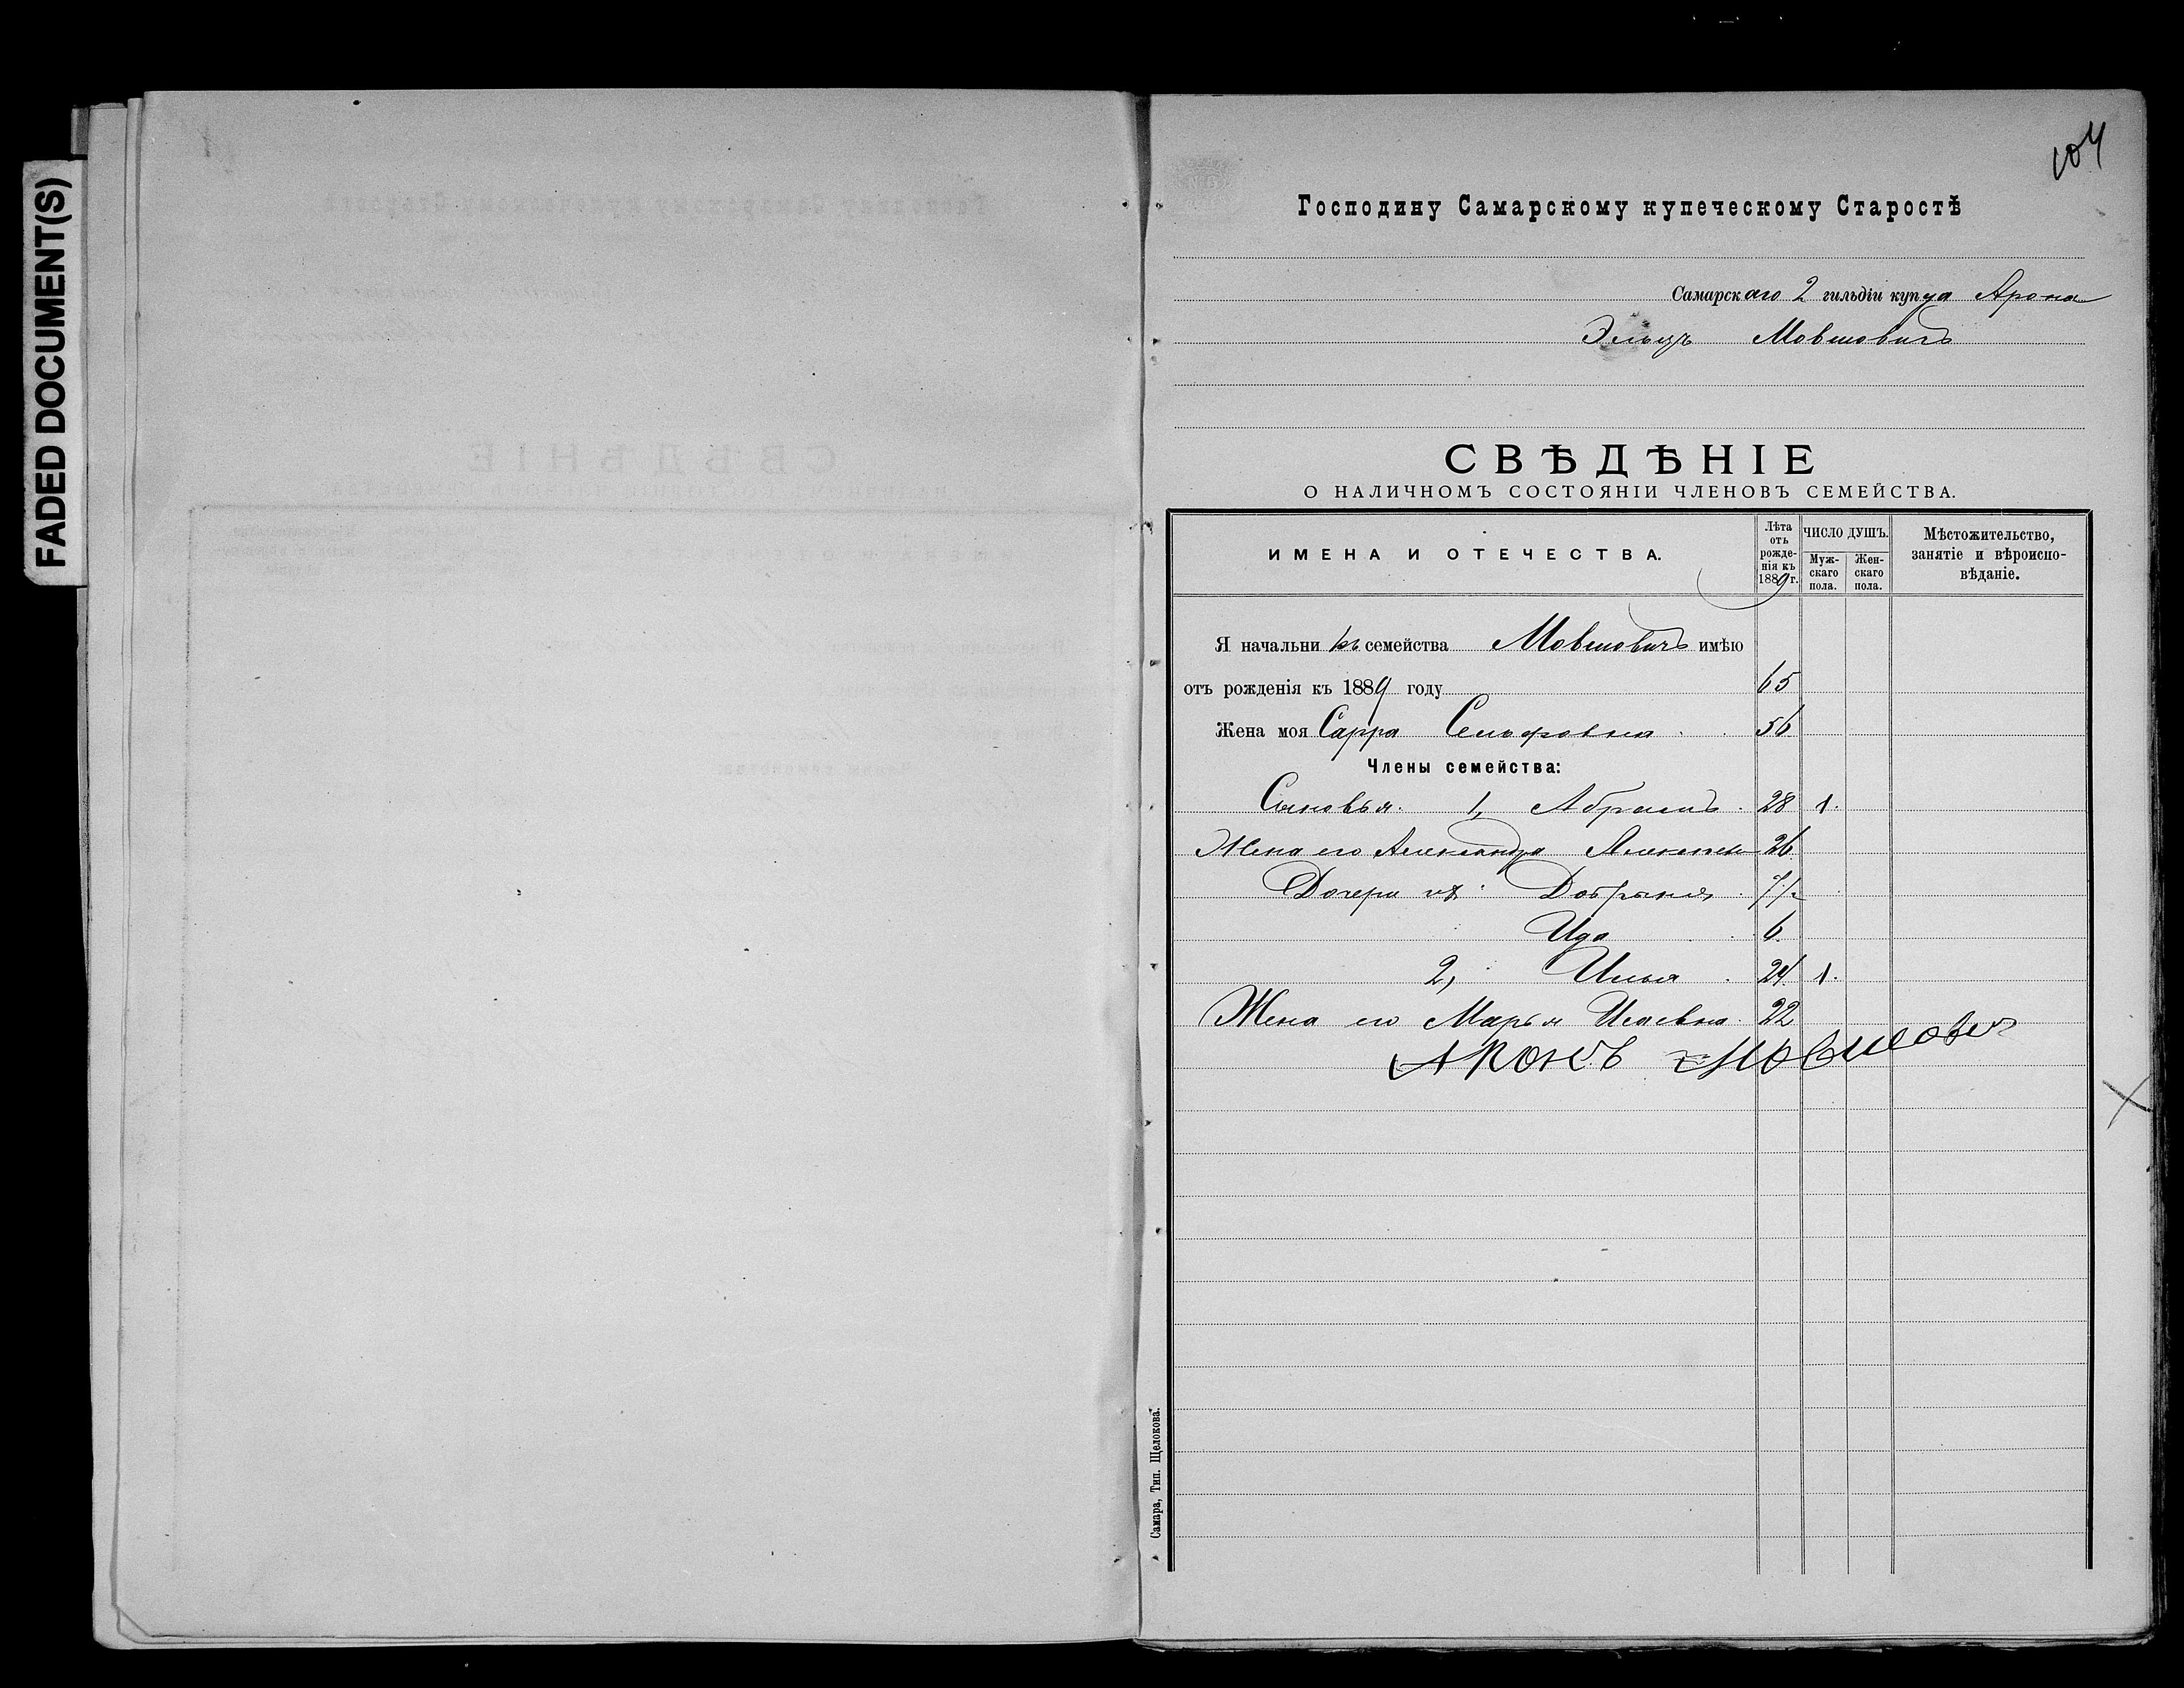 FADED DOCUMENT(S)
104
Господину Самарскому купеческому Старостѣ
Самарскаго 2 гильдіи купца Арона
Мовшовичъ
СВѢДѢНІЕ
О НАЛИЧНОМЪ СОСТОЯНІИ ЧЛЕНОВЪ СЕМЕЙСТВА.
ИМЕНА И ОТЕЧЕСТВА.
Лѣта отъ рожденія къ 1889 г.
ЧИСЛО ДУШЪ.
Мужскаго пола.
Женскаго пола.
Мѣстожительство, занятіе и вѣроисповѣданіе.
Я начальникъ семейства Мовшовичъ имѣю
отъ рожденія къ 1889 году 65
Жена моя Сарра 56
Члены семейства:
Сыновья. 1, Абрамъ 28 1.
Жена его Александра 26
Дочери
Ида 6
2, Илья 24 1.
Жена его Марья Исаевна 22
Аронъ Мовшовичъ
Самара, Тип. Щелокова.